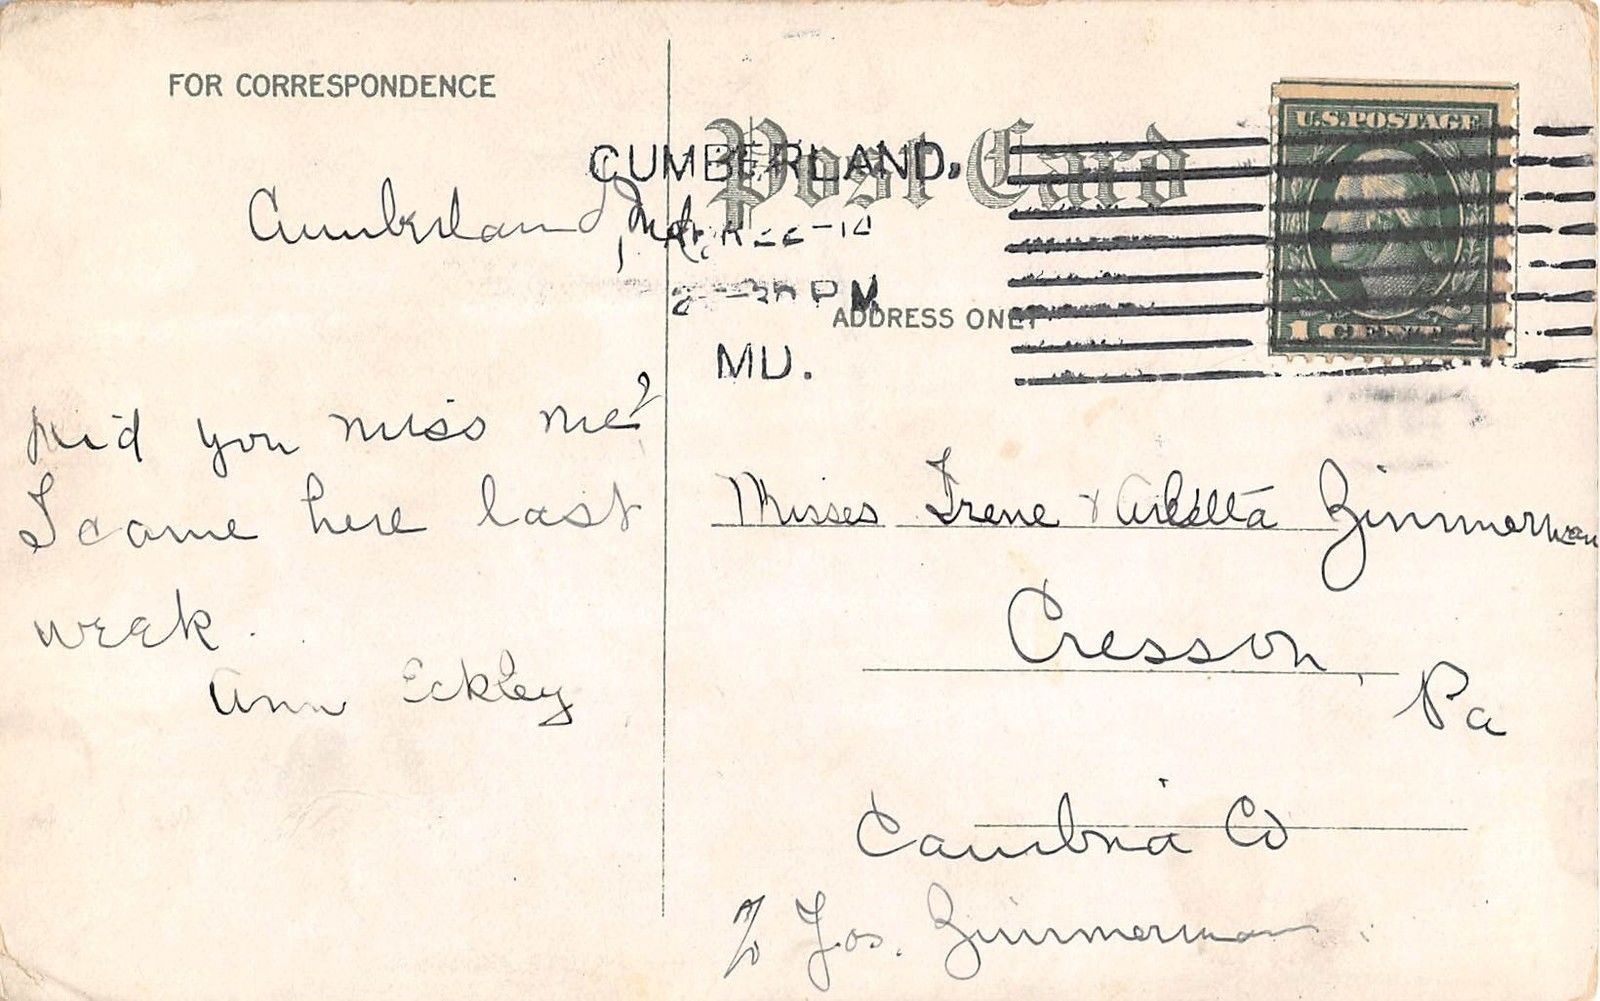 FOR CORRESPONDENCE
Cumberland, Md.
Did you miss me?
I came here last
week.
Ann Eckley
Post Card
CUMBERLAND.
2-30 PM
MD.
ADDRESS ONLY
U.S. POSTAGE
1 CENT 1
Misses Irene & Zimmerman
Cresson,
Pa
Cambria Co
℅ Jos. Zimmerman